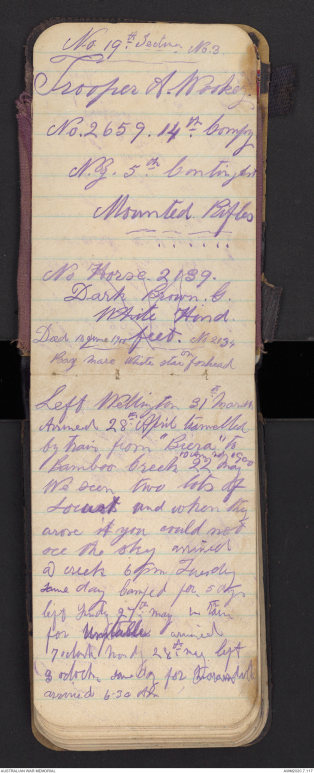 No. 19th Section No. 3
Trooper A. Wookey
No. 2659. 14th Compy
N.Z. 5th Contingent
Mounted Rifles
No Horse 2139.
Dark Brown. G.
White Hind
Died 13 June 1900 feet. No 2134
Bay mare white star on forhead
Left Wellington 31st March
Arrived 28th April travelled
by train from "Biera" to
Bamboo Creek 22nd May
We seen two lots of
Locust and when they
arose it you could not
see the sky arrived
a creek 6 pm Tuesday
same day camped for 5 days
left Sunday 27th may in train
for arrived
7 oclock Mondy 28th may left
3 oclock same day for
arrived 6.30 Am
AUSTRALIAN WAR MEMORIAL